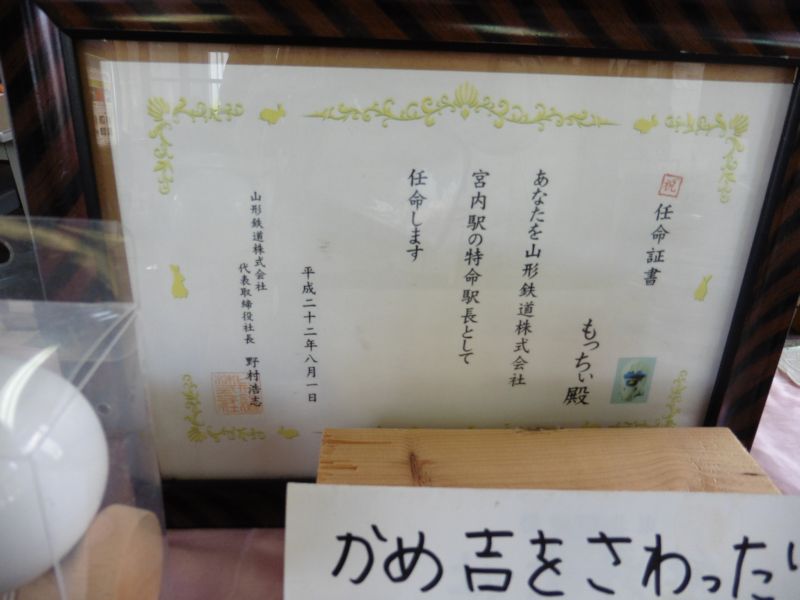 祝 任命証書
もっちぃ殿
あなたを山形鉄道株式会社
宮内駅の特命駅長として
任命します
平成二十二年八月一日
山形鉄道株式会社
代表取締役社長 野村浩志
かめ吉をさわった